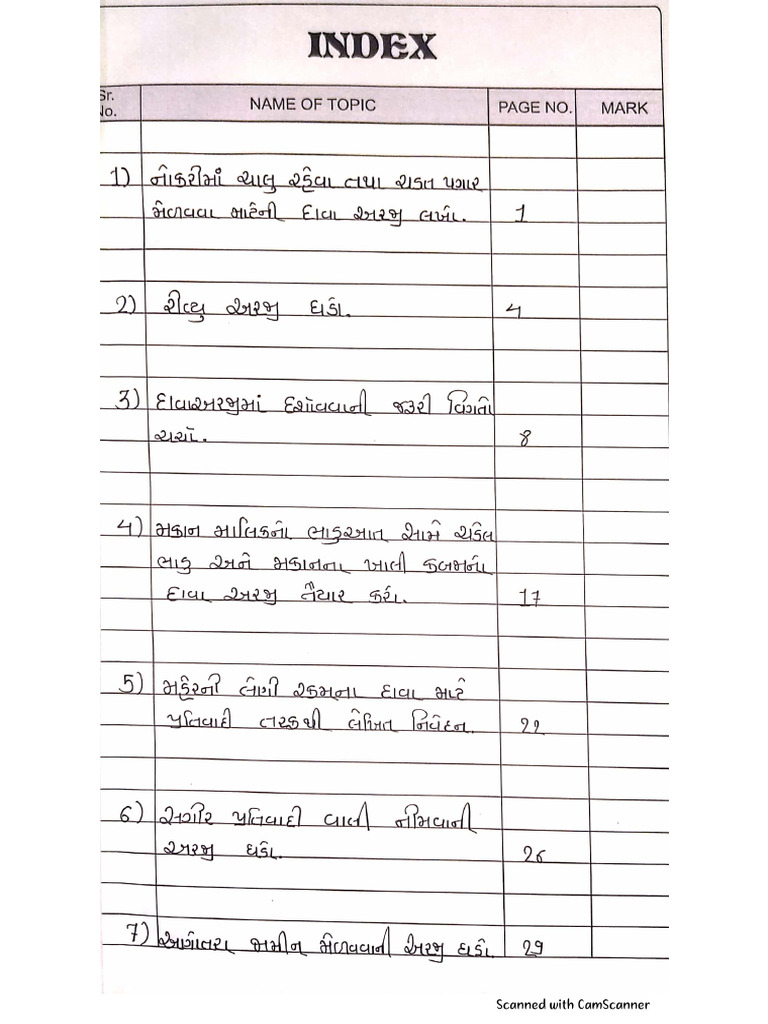 INDEX
Sr. No. NAME OF TOPIC PAGE NO. MARK
1) નોકરીમાં ચાલુ રહેવા તથા ચડત પગાર
મેળવવા માટેની દાવા અરજી લખો. 1
2) રીવ્યુ અરજી ઘડો. 4
3) દાવાઅરજીમાં દર્શાવવાની જરૂરી વિગતો
ચર્ચો. 8
4) મકાન માલિકના ભાડુઆત સામે ચડેલ
ભાડુ અને મકાનના ખાલી કબજાના
દાવા અરજી તૈયાર કરો. 17
5) મહેરની લેણી રકમના દાવા માટે
પ્રતિવાદી તરફથી લેખિત નિવેદન. 22
6) સગીર પ્રતિવાદી વાલી નીમવાની
અરજી ઘડો. 26
7) આગોતરા જામીન મેળવવાની અરજી ઘડો. 29
Scanned with CamScanner